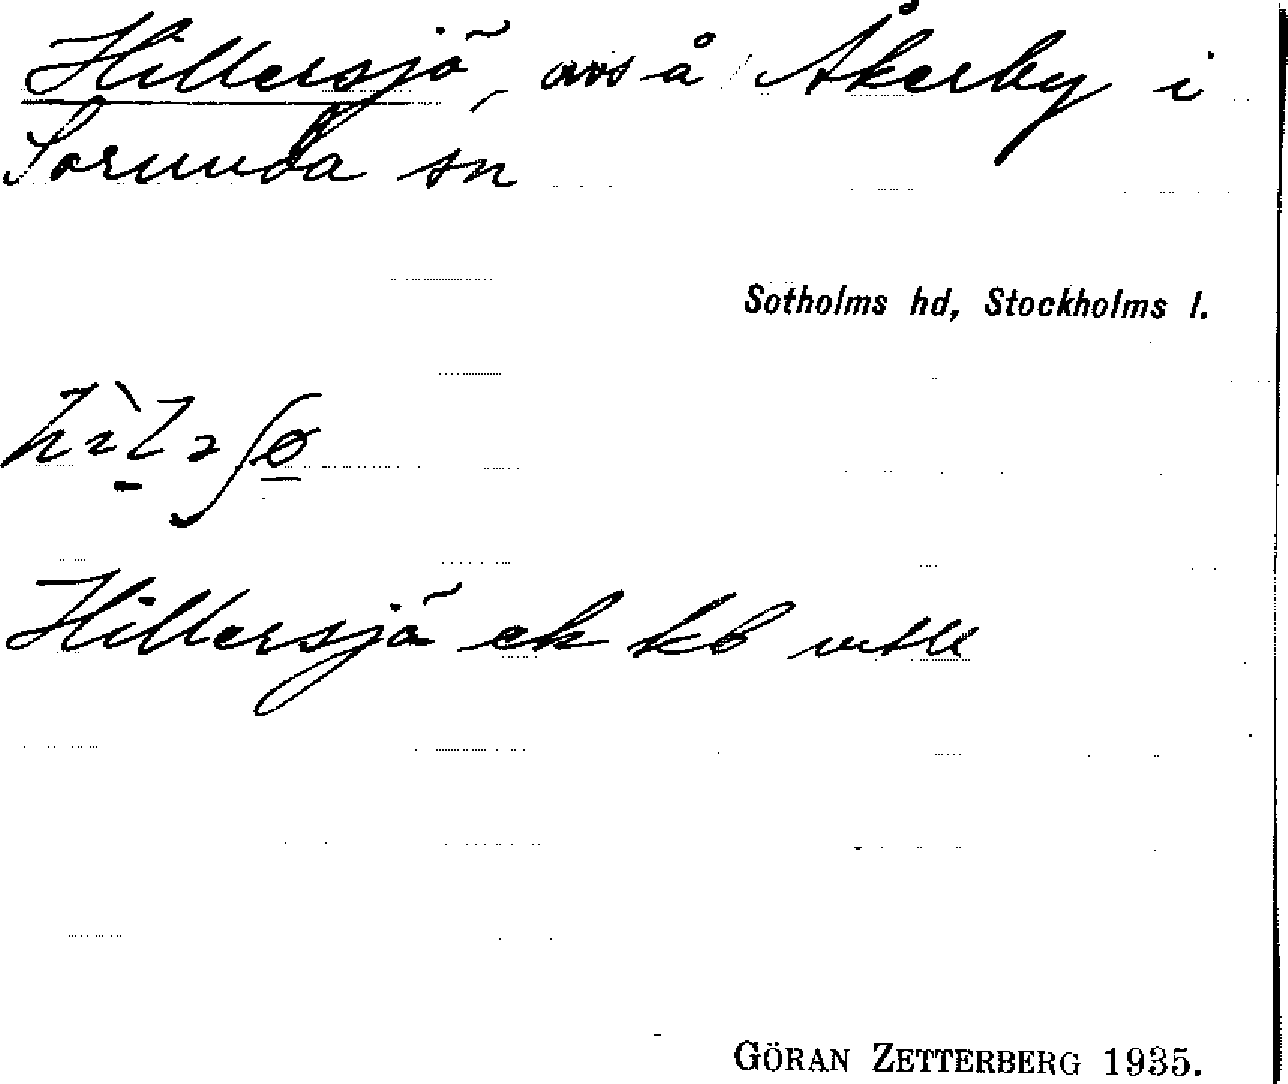 Hillersjö, avs å Åkerby i
Sorunda sn
Sotholms hd, Stockholms l.
Hillersjö ek kb
GÖRAN ZETTERBERG 1935.